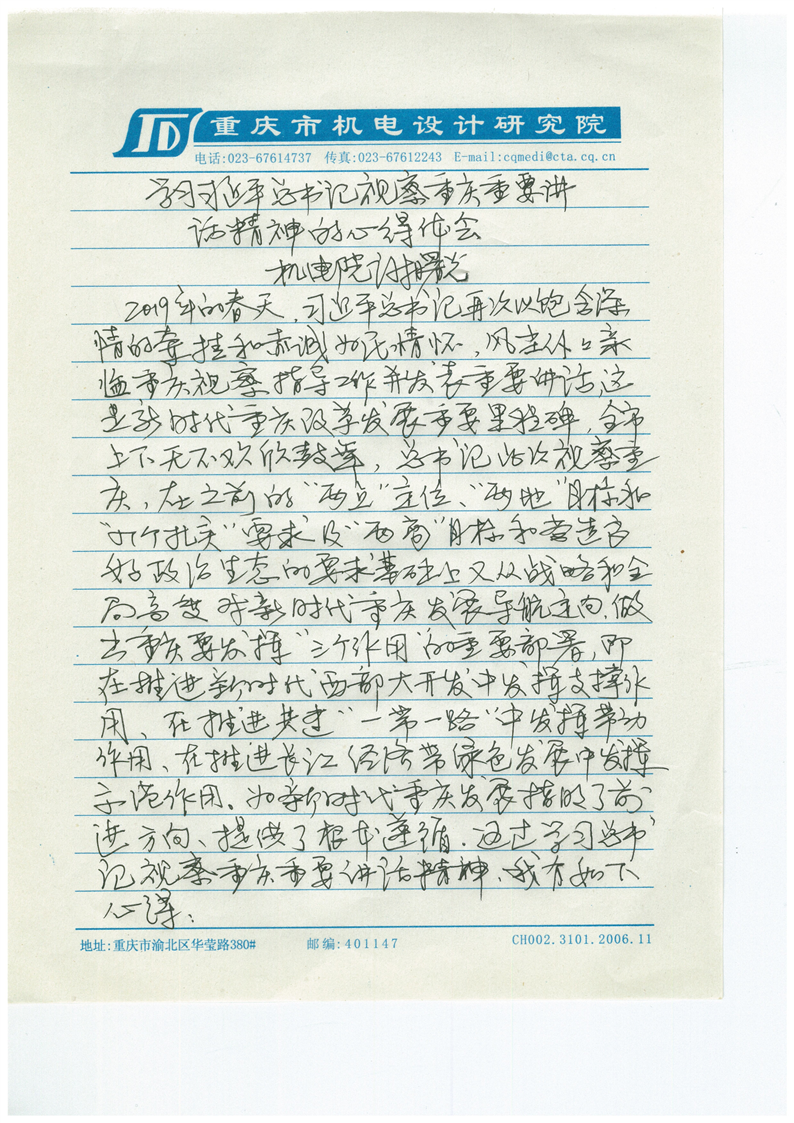 重庆市机电设计研究院
电话:023-67614737 传真:023-67612243 E-mail:cqmedi@cta.cq.cn
学习习近平总书记视察重庆重要讲
话精神的心得体会
机电院 谢曙光
2019年的春天,习近平总书记再次以饱含深
情的牵挂和赤诚为民情怀,风尘仆仆亲
临重庆视察指导工作并发表重要讲话,这
是新时代重庆改革发展重要里程碑,全市
上下无不欢欣鼓舞,总书记此次视察重
庆,在之前的“两点”定位、“两地”目标和
“四个扎实”要求及“两高”目标和营造良
好政治生态的要求基础上又从战略和全
局高度对新时代重庆发展导航定向,做
出重庆要发挥“三个作用”的重要部署,即
在推进新时代西部大开发中发挥支撑作
用、在推进共建“一带一路”中发挥带动
作用、在推进长江经济带绿色发展中发挥
示范作用。为新时代重庆发展指明了前
进方向、提供了根本遵循。通过学习总书
记视察重庆重要讲话精神,我有如下
心得:
地址:重庆市渝北区华莹路380# 邮编:401147 CH002.3101.2006.11